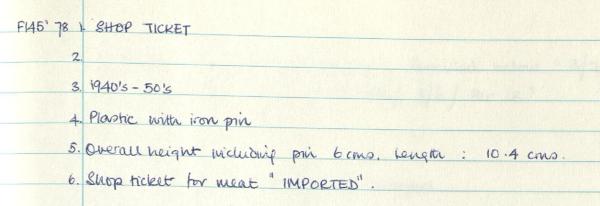 F145'78 1. SHOP TICKET
2.
3. 1940's - 50's
4. Plastic with iron pin
5. Overall height including pin 6 cms. Length : 10.4 cms.
6. Shop ticket for meat "IMPORTED".